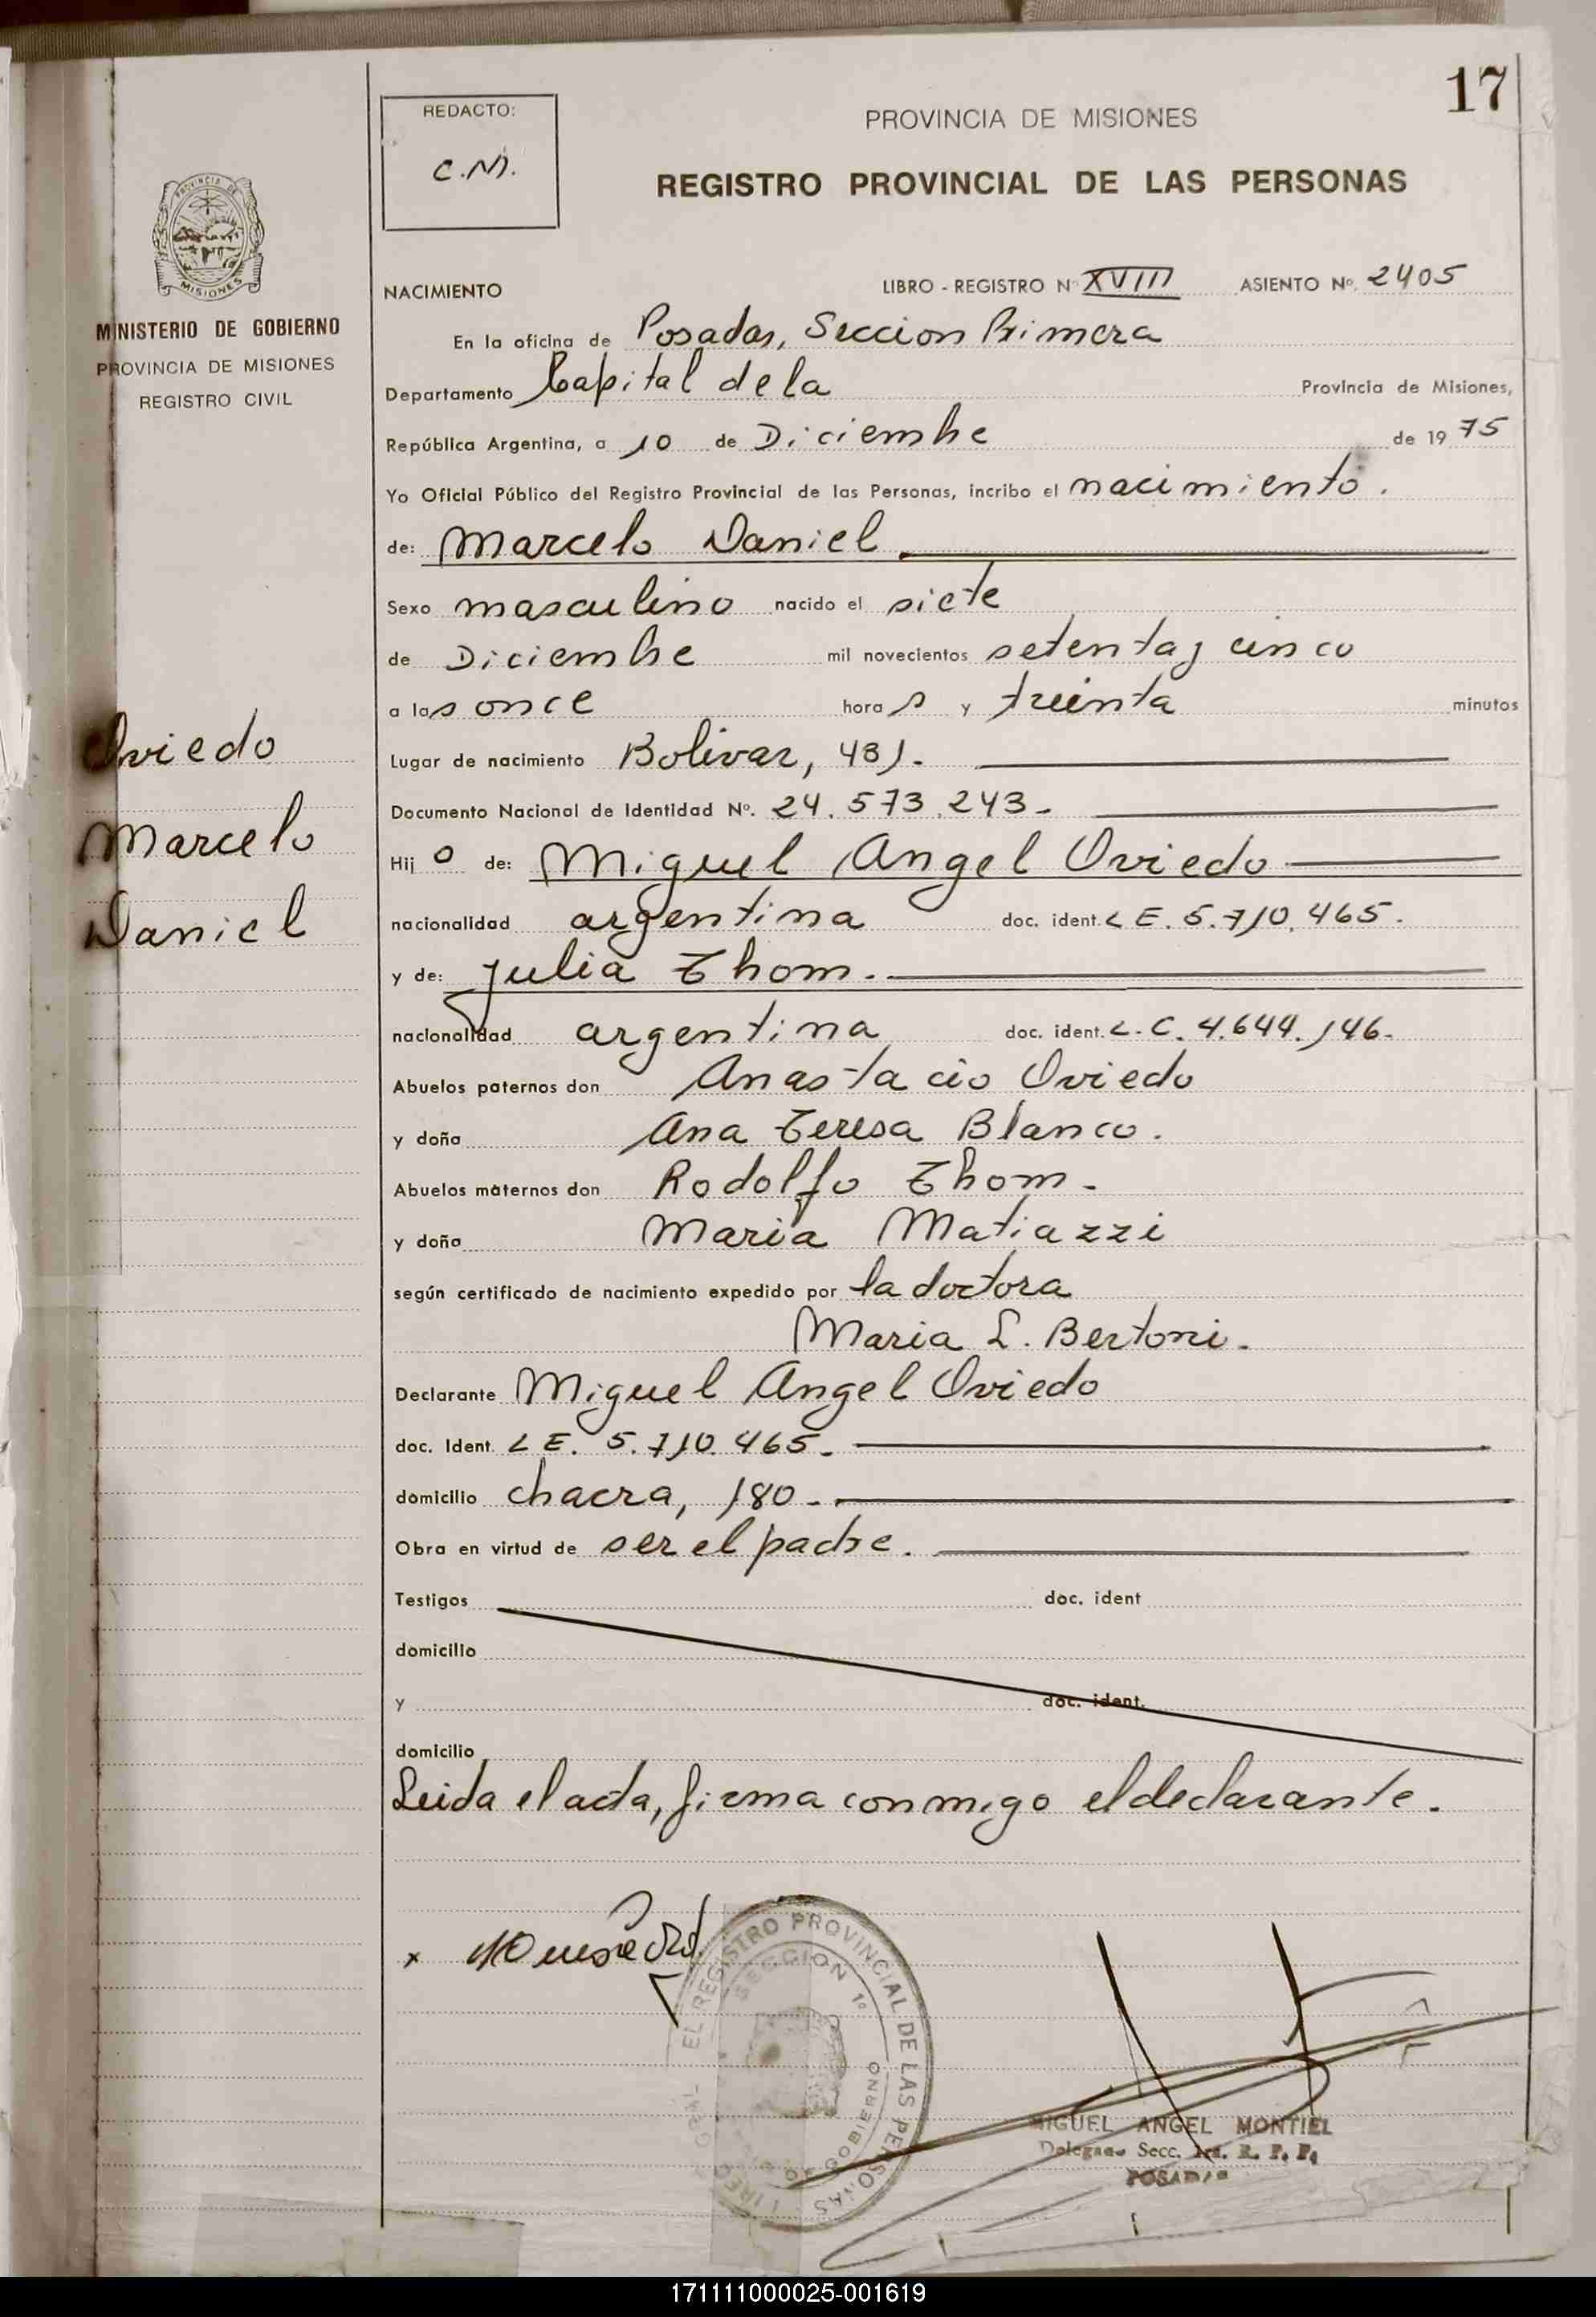 17
REDACTO:
C.M.
PROVINCIA DE MISIONES
REGISTRO PROVINCIAL DE LAS PERSONAS
PROVINCIA DE
MISIONES
MINISTERIO DE GOBIERNO
PROVINCIA DE MISIONES
REGISTRO CIVIL
NACIMIENTO LIBRO - REGISTRO Nº XVIII ASIENTO Nº. 2405
En la oficina de Posadas, Seccion Primera
Departamento Capital de la Provincia de Misiones,
República Argentina, a 10 de Diciembre de 19 75
Yo Oficial Público del Registro Provincial de las Personas, incribo el nacimiento.
de: Marcelo Daniel
Sexo masculino nacido el siete
de Diciembre mil novecientos setenta y cinco
a las once horas y treinta minutos
Oviedo
Marcelo
Daniel
Lugar de nacimiento Bolivar, 481.
Documento Nacional de Identidad Nº. 24.573.243.
Hijo de: Miguel Angel Oviedo
nacionalidad argentina doc. ident. L E. 5.710.465.
y de: Julia Thom.
nacionalidad argentina doc. ident. L. C. 4.644.146.
Abuelos paternos don Anastacio Oviedo
y doña Ana Teresa Blanco.
Abuelos maternos don Rodolfo Thom.
y doña Maria Matiazzi
según certificado de nacimiento expedido por la doctora
Maria L. Bertoni.
Declarante Miguel Angel Oviedo
doc. Ident L E. 5.710.465.
domicilio chacra, 180.
Obra en virtud de ser el padre.
Testigos doc. ident
domicilio
y doc. ident.
domicilio
Leida el acta, firma conmigo el declarante.
x
REGISTRO PROVINCIAL DE LAS PERSONAS
SECCION 1º
GOBIERNO
MIGUEL ANGEL MONTIEL
Delegado Secc. 1ra. R. P. P.
POSADAS
171111000025-001619